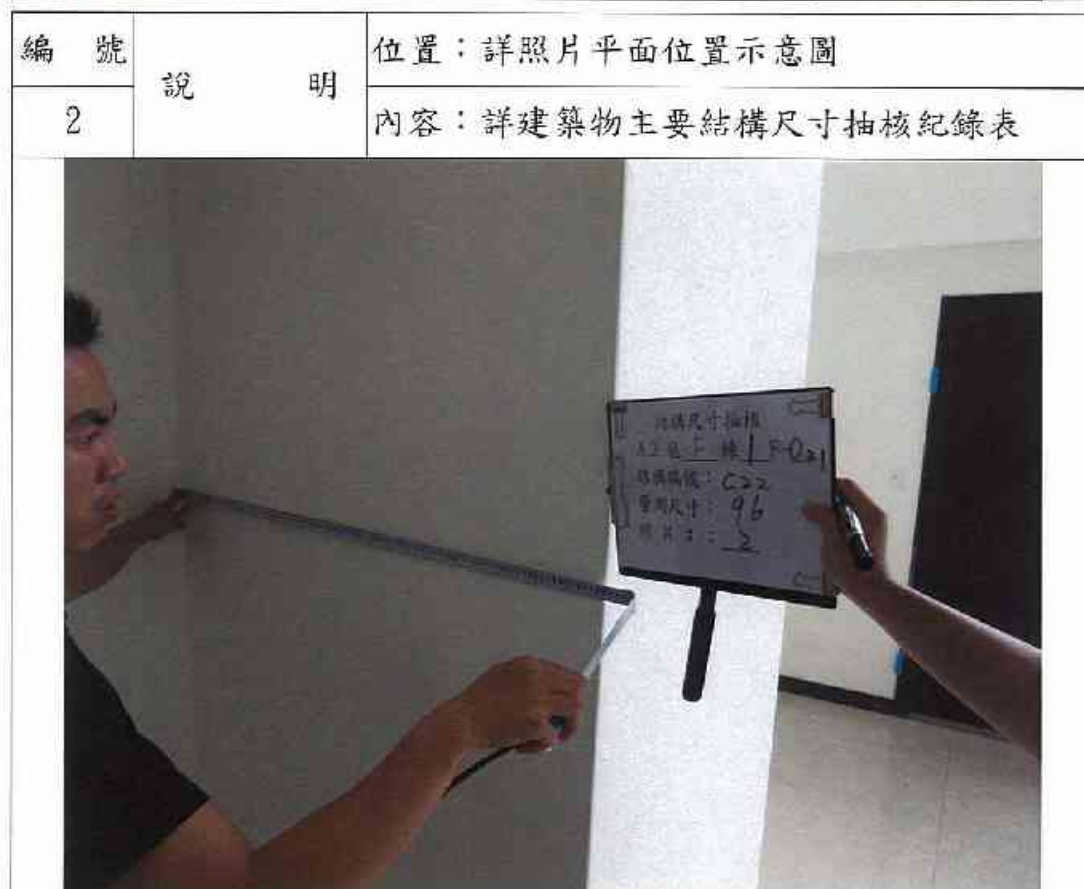 編 號
2
說 明
位置：詳照片平面位置示意圖
內容：詳建築物主要結構尺寸抽核紀錄表
結構尺寸抽核
區 F 棟 1 F
結構編號：C22
量測尺寸：96
照片：2